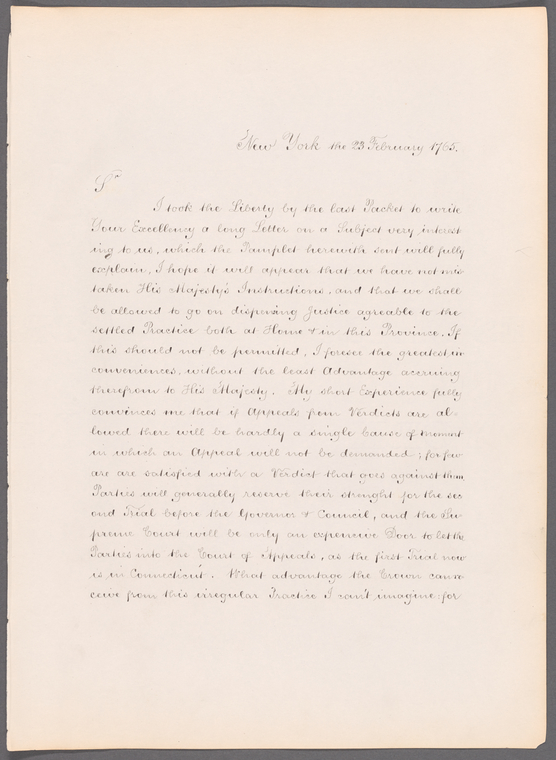 New York the 23 February 1765.
Sr
I took the Liberty by the last Packet to write
Your Excellency a long Letter on a Subject very interest
ing to us, which the Pamplet herewith sent will fully
explain, I hope it will appear that we have not mis
taken His Majesty's Instructions, and that we shall
be allowed to go on dispensing Justice agreable to the
settled Practice both at Home & in this Province. If
this should not be permitted, I foresee the greatest in
conveniences, without the least Advantage accruing
therefrom to His Majesty. My short Experience fully
convinces me that if Appeals from Verdicts are al-
lowed there will be hardly a single Cause of moment
in which an Appeal will not be demanded; for few
are are satisfied with a Verdict that goes against them
Parties will generally reserve their strenght for the sec
ond Trial before the Governor & Council, and the Su
preme Court will be only an expencive Door to let the
Parties into the Court of Appeals, as the first Trial now
is in Connecticut. What advantage the Crown can re
ceive from this irregular Practice I can't imagine: for